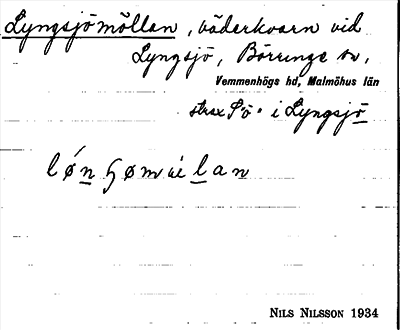 Lyngsjömöllan, väderkvarn vid
Lyngsjö, Börringe sn,
Vemmenhögs hd, Malmöhus län
strax SÖ. i Lyngsjö
NILS NILSSON 1934